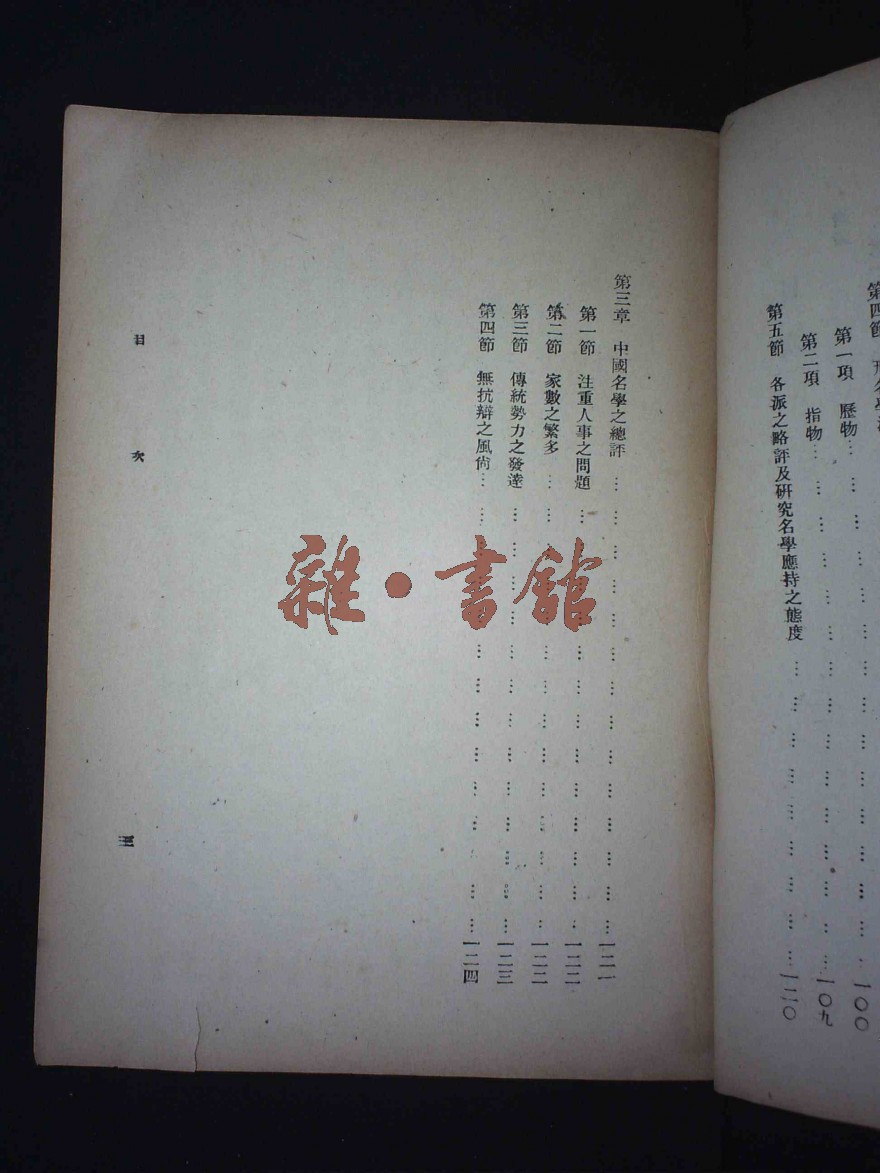 第一項　歷物… … … … … … … … … … … … 一〇〇
第二項　指物… … … … … … … … … … … … 一〇九
第五節　各派之略評及研究名學應持之態度 … … … … … … … 一二〇
第三章　中國名學之總評 … … … … … … … … … … … … … … 一二一
第一節　注重人事之問題 … … … … … … … … … … … … … 一二二
第二節　家數之繁多 … … … … … … … … … … … … … 一二二
第三節　傳統勢力之發達 … … … … … … … … … … … … 一二三
第四節　無抗辯之風尙… … … … … … … … … … … … 一二四
目　次
三
雜·書館